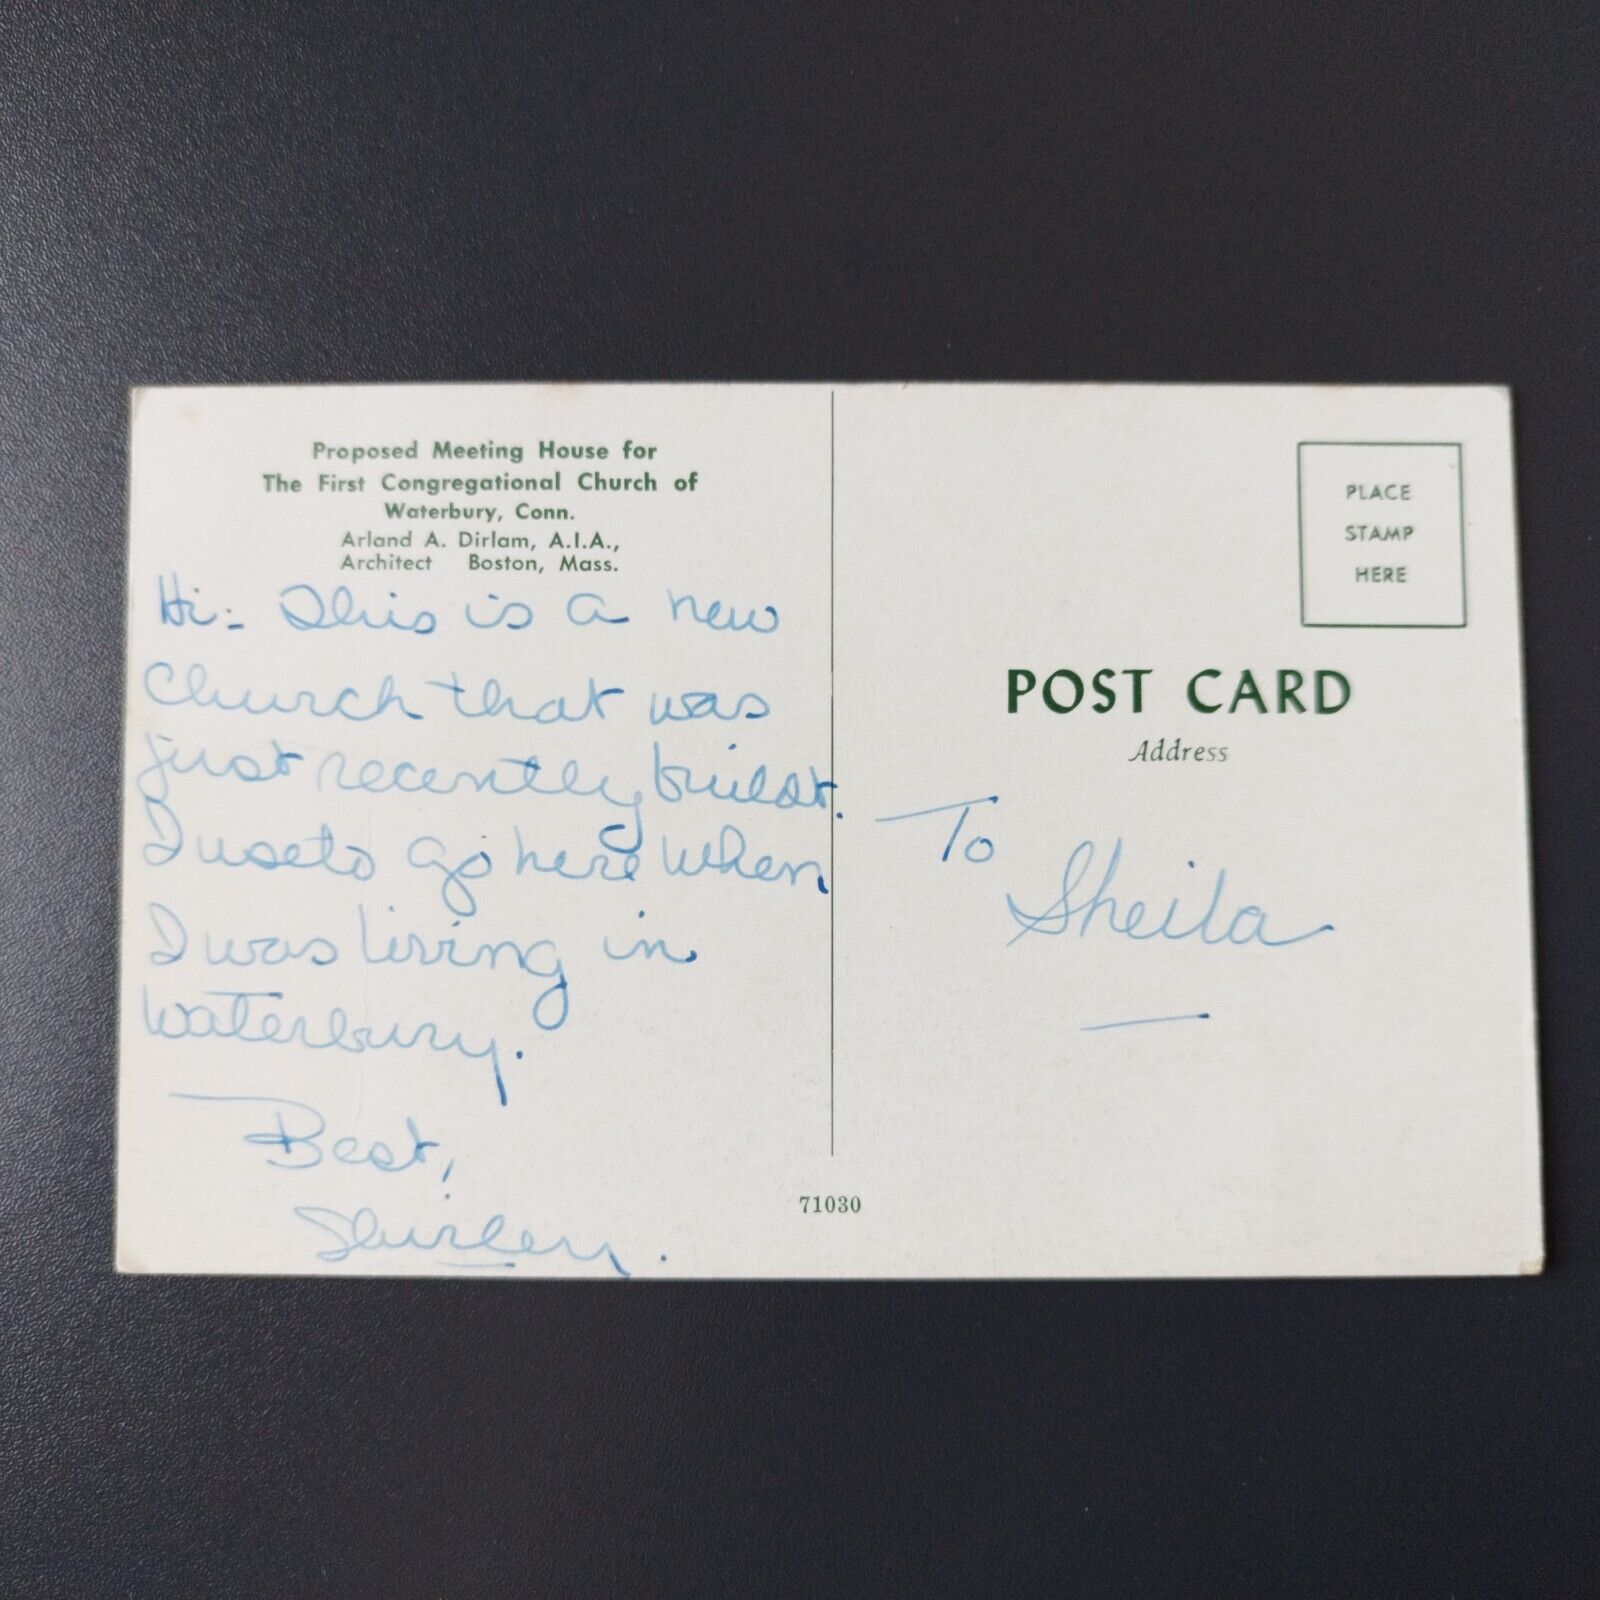 Proposed Meeting House for
The First Congregational Church of
Waterbury, Conn.
Arland A. Dirlam, A.I.A.,
Architect Boston, Mass.
Hi: This is a new
Church that was
just recently buildt.
I use to go here when
I was living in
Waterbury.
Best,
Shirley.
71030
PLACE
STAMP
HERE
POST CARD
Address
To
Sheila